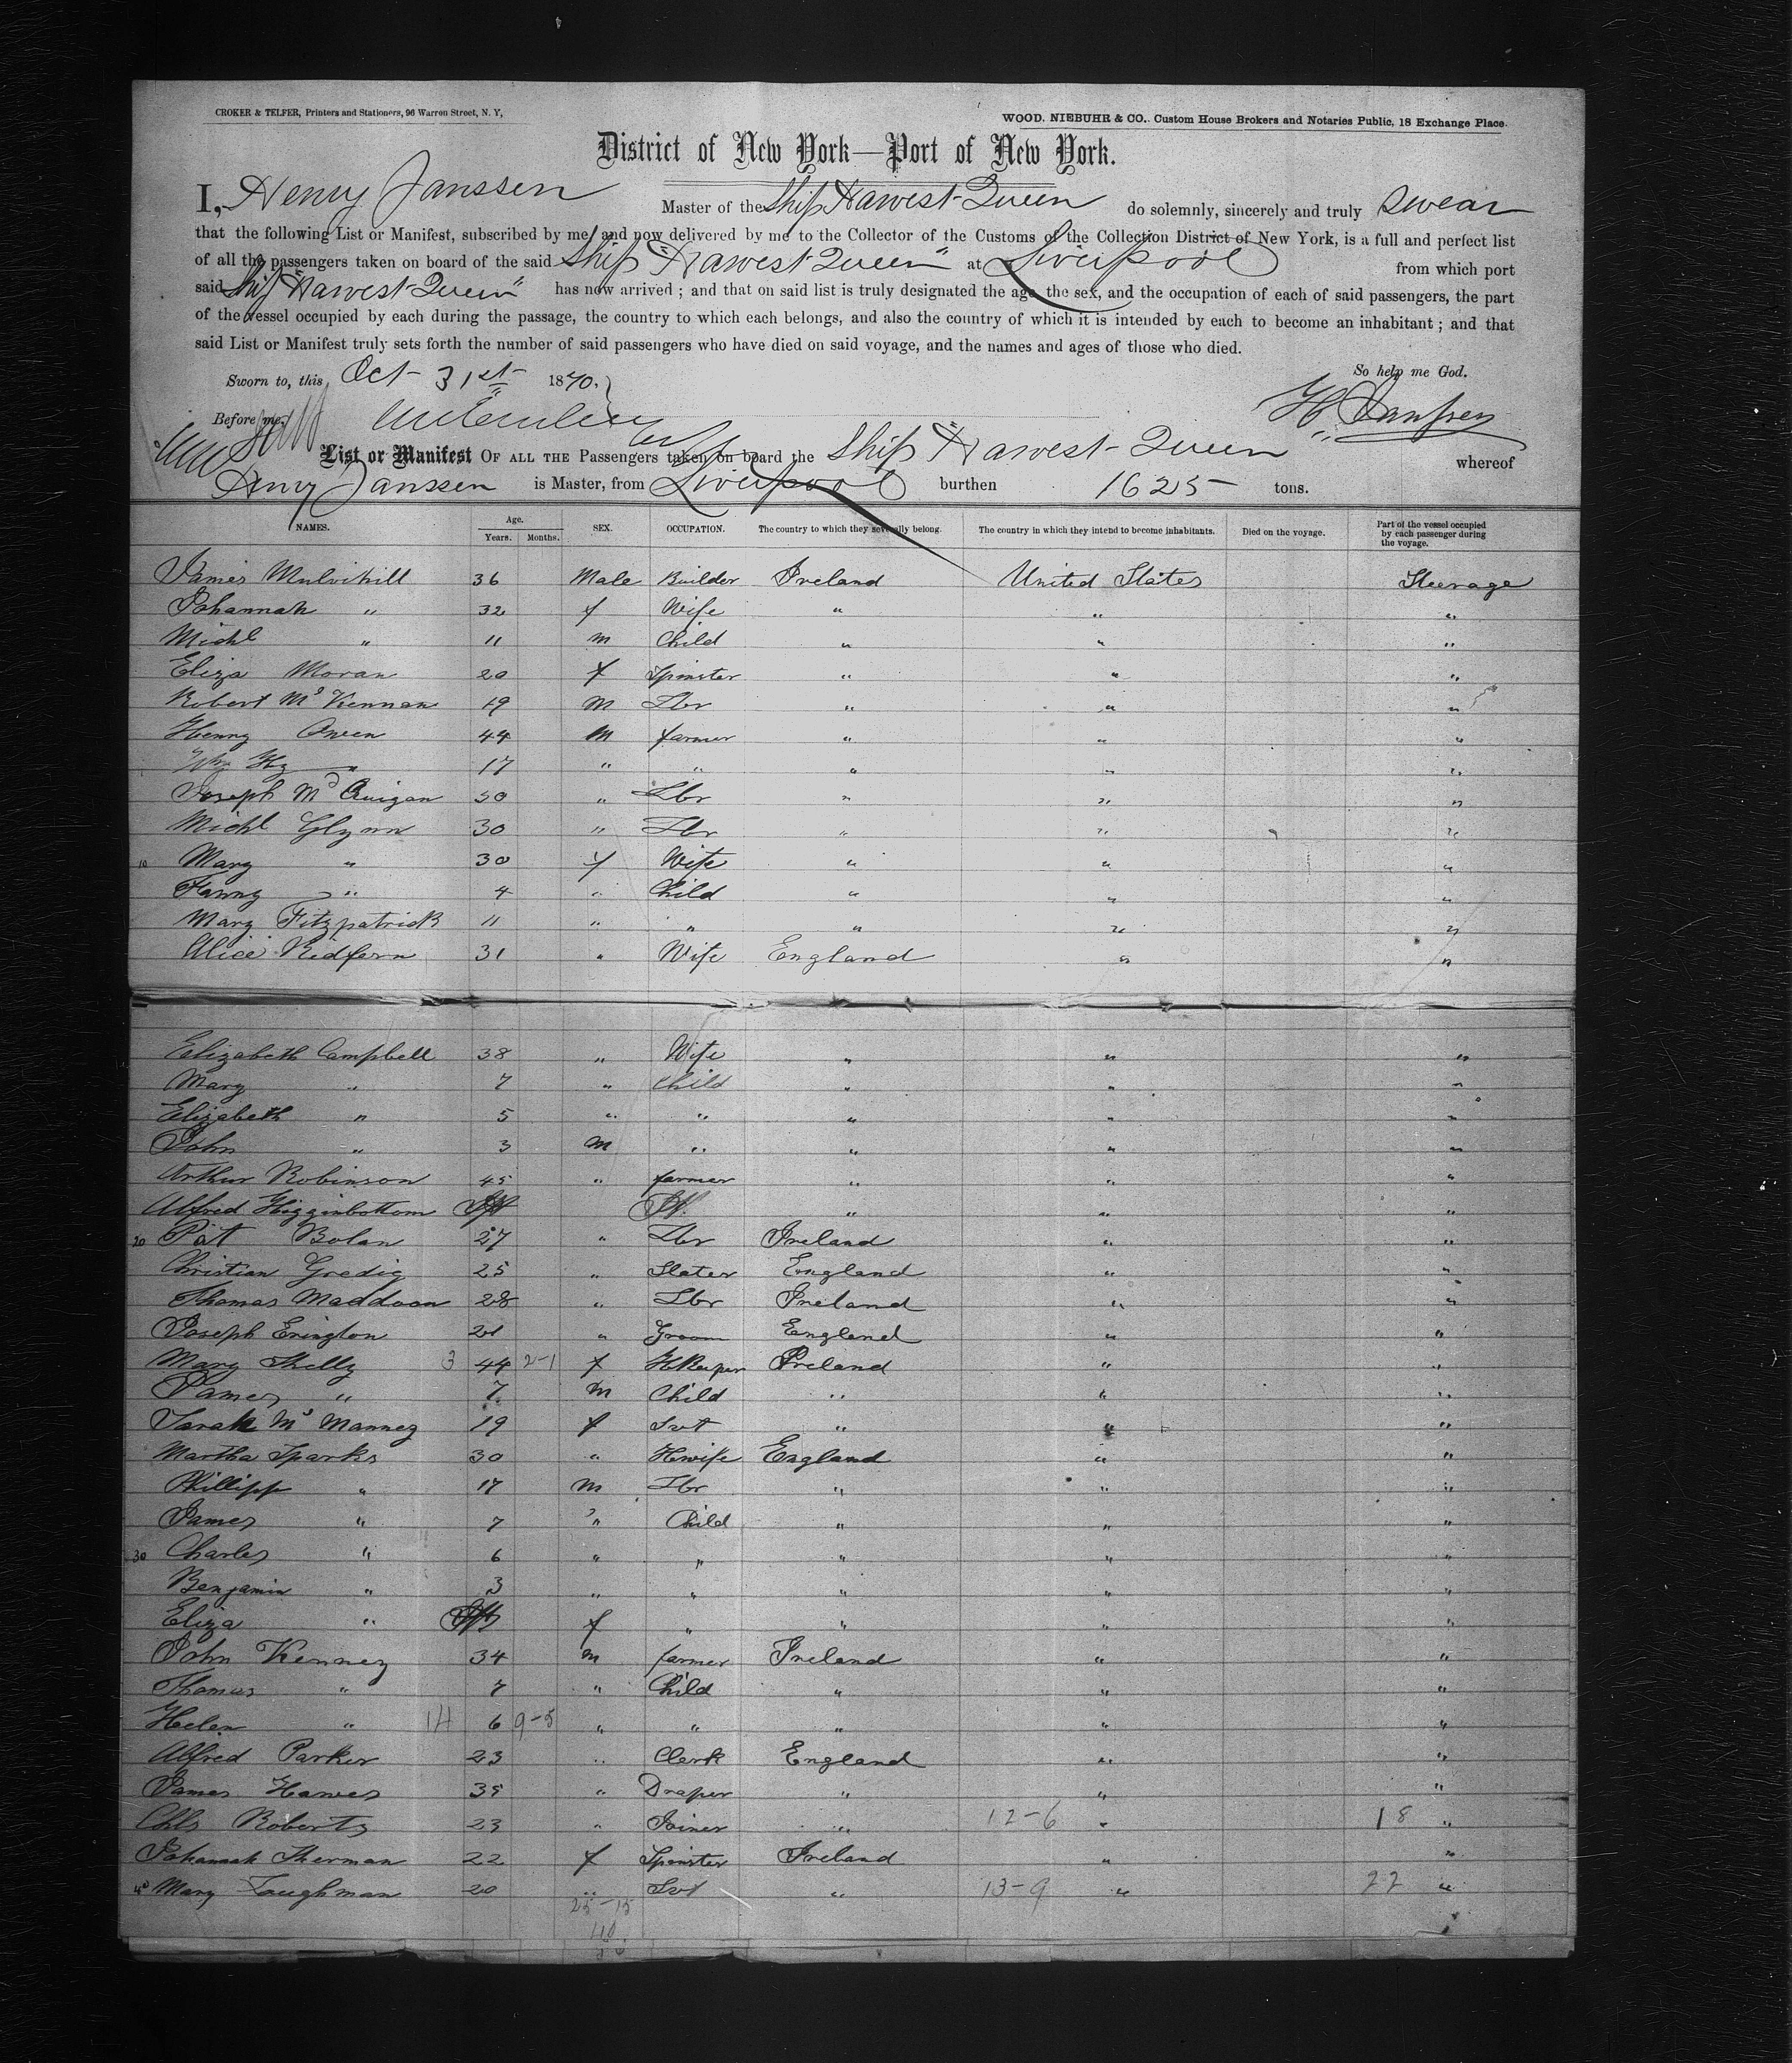 CROKER & TELFER, Printers and Stationers, 96 Warren Street, N. Y,
WOOD. NIEBUHR & CO.. Custom House Brokers and Notaries Public, 18 Exchange Place.
District of New York—Port of New York.
I, Henry Janssen Master of the Ship Harvest Queen do solemnly, sincerely and truly swear
that the following List or Manifest, subscribed by me and now delivered by me to the Collector of the Customs of the Collection District of New York, is a full and perfect list
of all the passengers taken on board of the said Ship "Harvest Queen" at Liverpool from which port
said Ship "Harvest Queen" has now arrived ; and that on said list is truly designated the age the sex, and the occupation of each of said passengers, the part
of the vessel occupied by each during the passage, the country to which each belongs, and also the country of which it is intended by each to become an inhabitant ; and that
said List or Manifest truly sets forth the number of said passengers who have died on said voyage, and the names and ages of those who died.
Sworn to, this Oct 31st 1870. So help me God.
Before me, H. Janssen
List or Manifest OF ALL THE Passengers taken on board the Ship "Harvest Queen whereof
Henry Janssen is Master, from Liverpool burthen 1625 tons.
NAMES. Age. Years. Months. SEX. OCCUPATION. The country to which they severally belong. The country in which they intend to become inhabitants. Died on the voyage. Part of the vessel occupied by each passenger during the voyage.
James Mulvihill 36 Male Builder Ireland United States Steerage
Johannah " 32 f Wife " " "
Michl " 11 m Child " " "
Eliza Moran 20 f Spinster " " "
Robert Mc Kennan 19 M Lbr " " "
Henry Owen 44 M farmer " " "
Wm Hy " 17 " " " " "
Joseph Mc Quigan 50 " Lbr " " "
Michl Glynn 30 " Lbr " " "
10 Mary " 30 f Wife " " "
Fanny " 4 " Child " " "
Mary Fitzpatrick 11 " " " " "
Alice Ridfern 31 " Wife England " "
Elizabeth Campbell 38 " Wife " " "
Mary " 7 " Child " " "
Elizabeth " 5 " " " " "
John " 3 M " " " "
Arthur Robinson 45 " farmer " " "
Alfred Higginbottom " " "
20 Pat Bolan 27 " Lbr Ireland " "
Christian Gredig 25 " Slater England " "
Thomas Maddoon 28 " Lbr Ireland " "
Joseph Erington 21 " Groom England " "
Mary Skelly 3 44 2-1 f HKeeper Ireland " "
James " 7 m Child " " "
Sarah Mc Manney 19 f Svt " " "
Martha Sparks 30 " Hwife England " "
Phillipp " 17 m Lbr " " "
James " 7 " Child " " "
30 Charles " 6 " " " " "
Benjamin " 3 " " " " "
Eliza " f " " " "
John Kenney 34 m farmer Ireland " "
Thomas " 7 " Child " " "
Helen " 14 6 9-5 " " " " "
Alfred Parker 23 " Clerk England " "
James Hawes 35 " Draper " " "
Chls Roberts 23 " Joiner " 12-6 " 18 "
Johannah Sherman 22 f Spinster Ireland " "
40 Mary Laughman 20 " Svt " 13-9 " 22 "
25-15
40